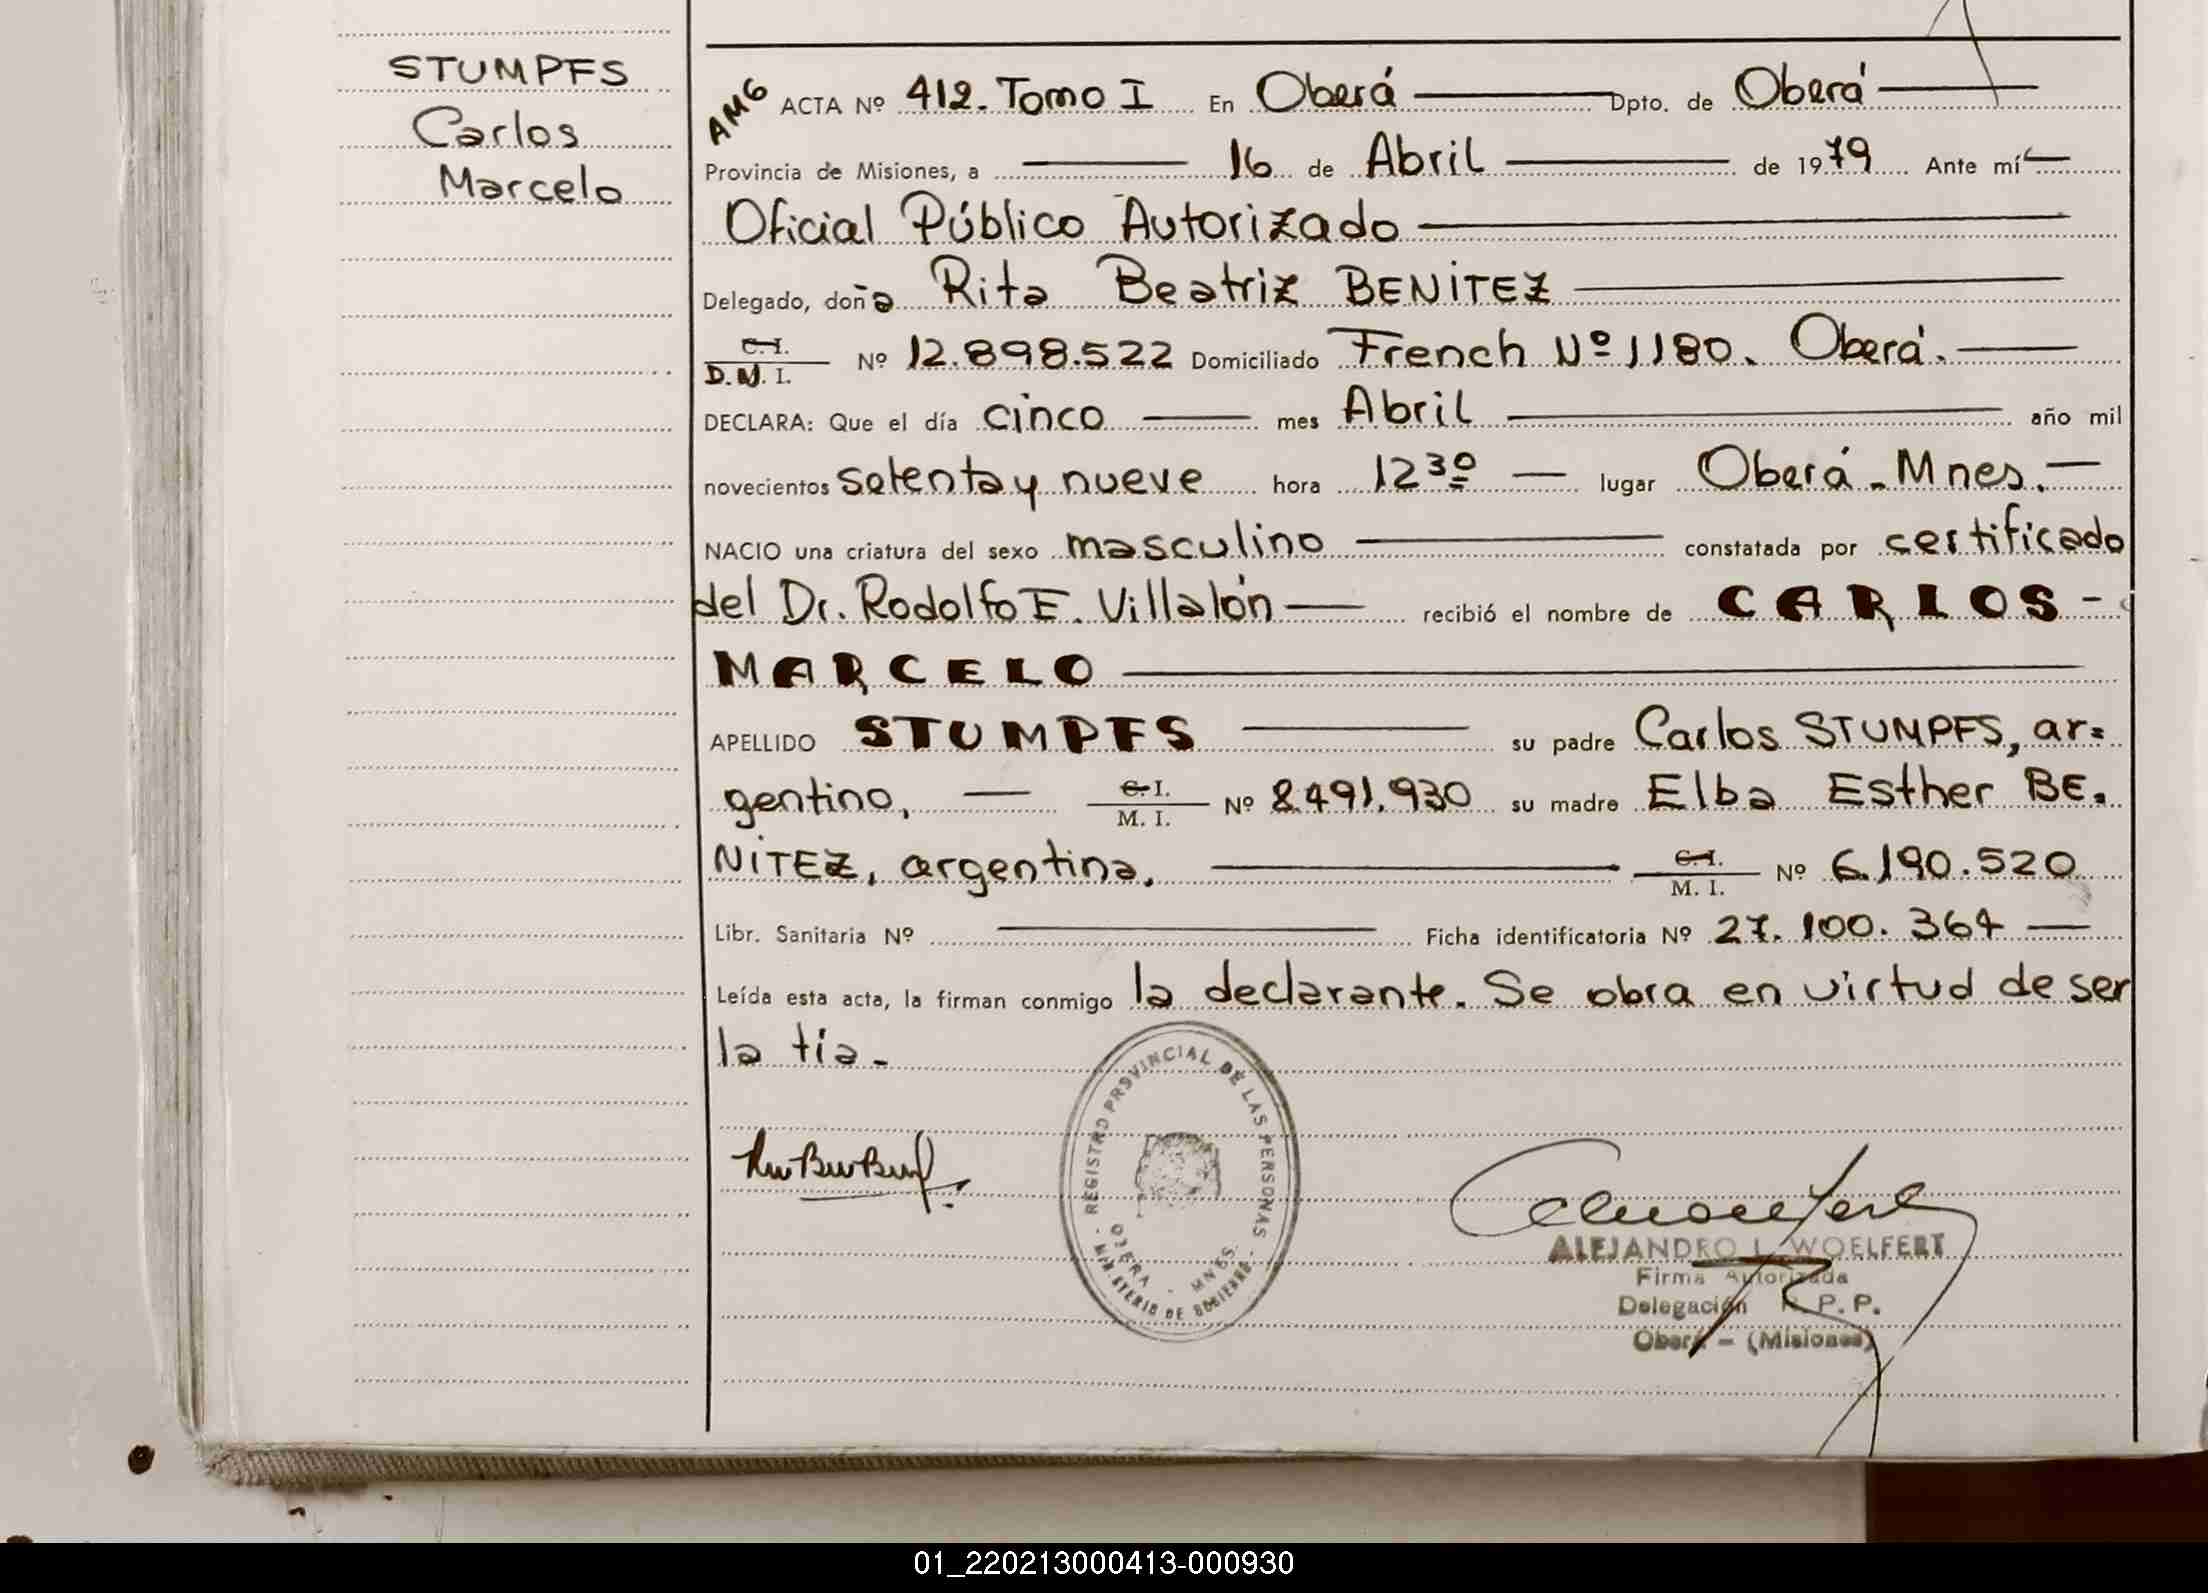 STUMPFS
Carlos
Marcelo
AMG
ACTA Nº 412. Tomo I En Oberá Dpto. de Oberá
Provincia de Misiones, a 16 de Abril de 1979 Ante mí
Oficial Público Autorizado
Delegado, doña Rita Beatriz BENITEZ
C.I.
D.N.I. Nº 12.898.522 Domiciliado French Nº 1180. Oberá.
DECLARA: Que el día cinco mes Abril año mil
novecientos setenta y nueve hora 12 30 lugar Oberá - Mnes.
NACIO una criatura del sexo masculino constatada por certificado
del Dr. Rodolfo E. Villalón recibió el nombre de CARLOS -
MARCELO
APELLIDO STUMPFS su padre Carlos STUMPFS, ar=
gentino, C.I.
M. I. Nº 8.491.930 su madre Elba Esther BE.
NITEZ, argentina. C.I.
M. I. Nº 6.190.520
Libr. Sanitaria Nº Ficha identificatoria Nº 27.100.364
Leída esta acta, la firman conmigo la declarante. Se obra en virtud de ser
la tía -
- REGISTRO PROVINCIAL DE LAS PERSONAS -
MINISTERIO DE GOBIERNO
OBERA - MNES.
ALEJANDRO L. WOELFERT
Firma Autorizada
Delegación R.P.P.
Oberá - (Misiones)
01_220213000413-000930